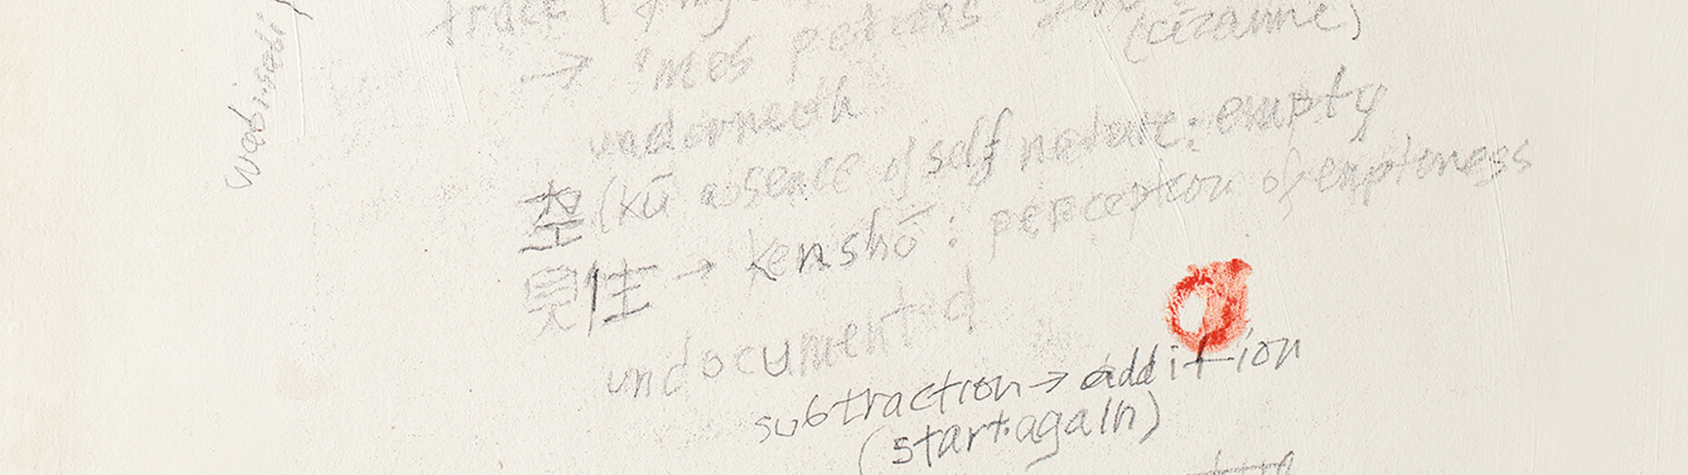 wabi-sabi
trace
→ 'mes petites (cézanne)
underneath
空 (kū absence of self nature: empty
見性 → kenshō: perception of emptiness
undocumented
subtraction → addition
(start again)